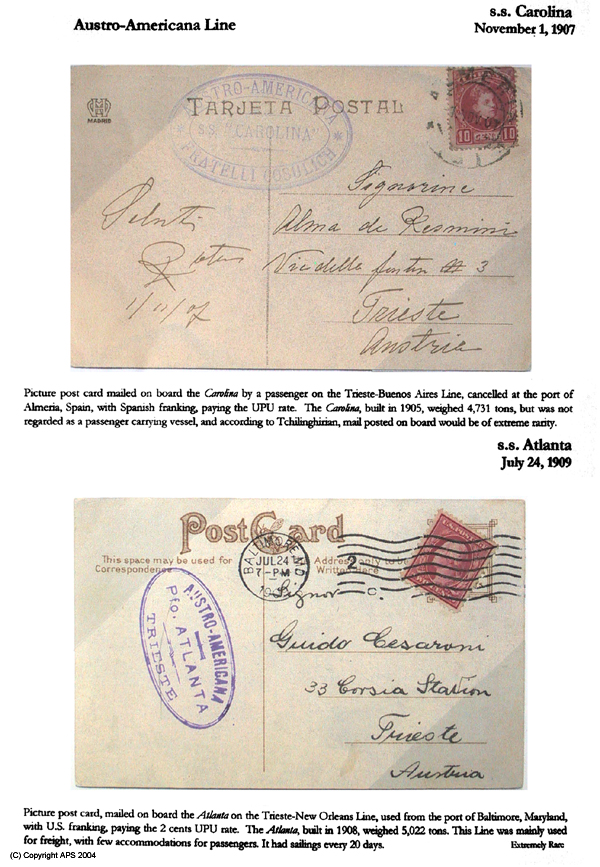 Austro-Americana Line
s.s. Carolina
November 1, 1907
AUSTRO-AMERICANA
S.S. "CAROLINA"
FRATELLI COSULICH
TARJETA POSTAL
MADRID
10 CENTS 10
Signorine
Saluti
Alma de Resmini
Via della # 3
1/11/07
Trieste
Austria
Picture post card mailed on board the Carolina by a passenger on the Trieste-Buenos Aires Line, cancelled at the port of
Almeria, Spain, with Spanish franking, paying the UPU rate. The Carolina, built in 1905, weighed 4,731 tons, but was not
regarded as a passenger carrying vessel, and according to Tchilinghirian, mail posted on board would be of extreme rarity.
s.s. Atlanta
July 24, 1909
Post Card
This space may be used for
Correspondence
Address only to be
Written Here
BALTIMORE, MD
JUL 24
7-PM
2
C.
AUSTRO-AMERICANA
Pfo. ATLANTA
TRIESTE
Signor
Guido Cesaroni
33 Corsia Stadion
Trieste
Austria
Picture post card, mailed on board the Atlanta on the Trieste-New Orleans Line, used from the port of Baltimore, Maryland,
with U.S. franking, paying the 2 cents UPU rate. The Atlanta, built in 1908, weighed 5,022 tons. This Line was mainly used
for freight, with few accommodations for passengers. It had sailings every 20 days.
Extremely Rare
(C) Copyright APS 2004